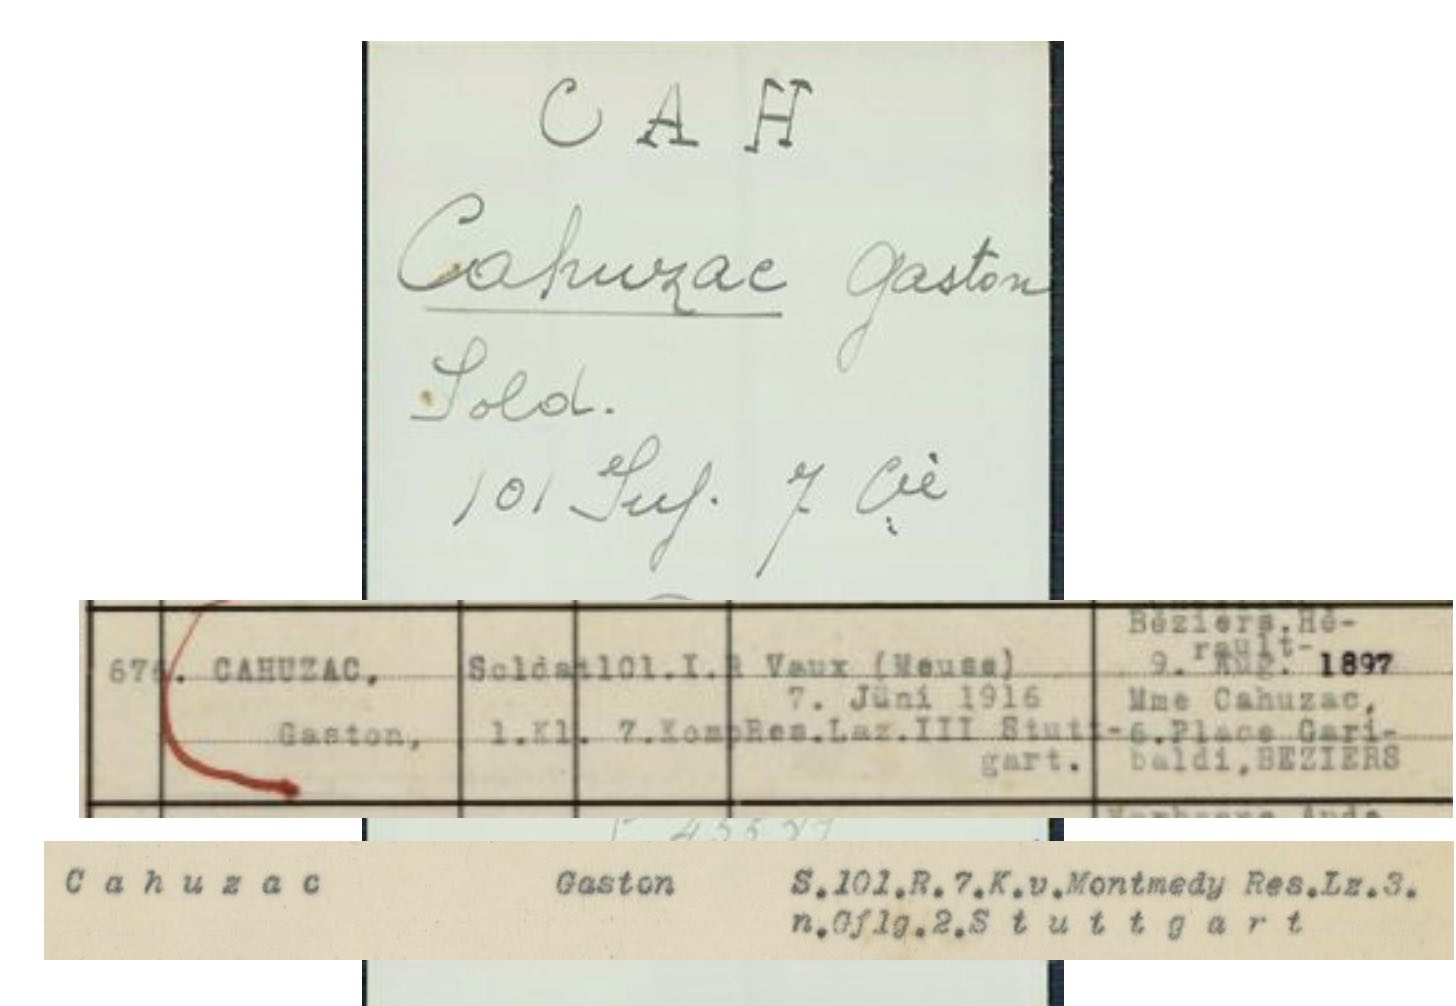 C A H
Cahuzac Gaston
Sold.
101 Inf. 7 Cie
Béziers.Hé-
rault-
676. CAHUZAC, Soldat 101.I.R Vaux (Meuse) 9. Aug. 1897
7. Juni 1916 Mme Cahuzac,
Gaston, 1.Kl. 7.Komp Res.Laz.III Stutt- 6.Place Gari-
gart. baldi,BEZIERS
C a h u z a c Gaston S.101.R.7.K.v.Montmedy Res.Lz.3.
n.Gflg.2.S t u t t g a r t